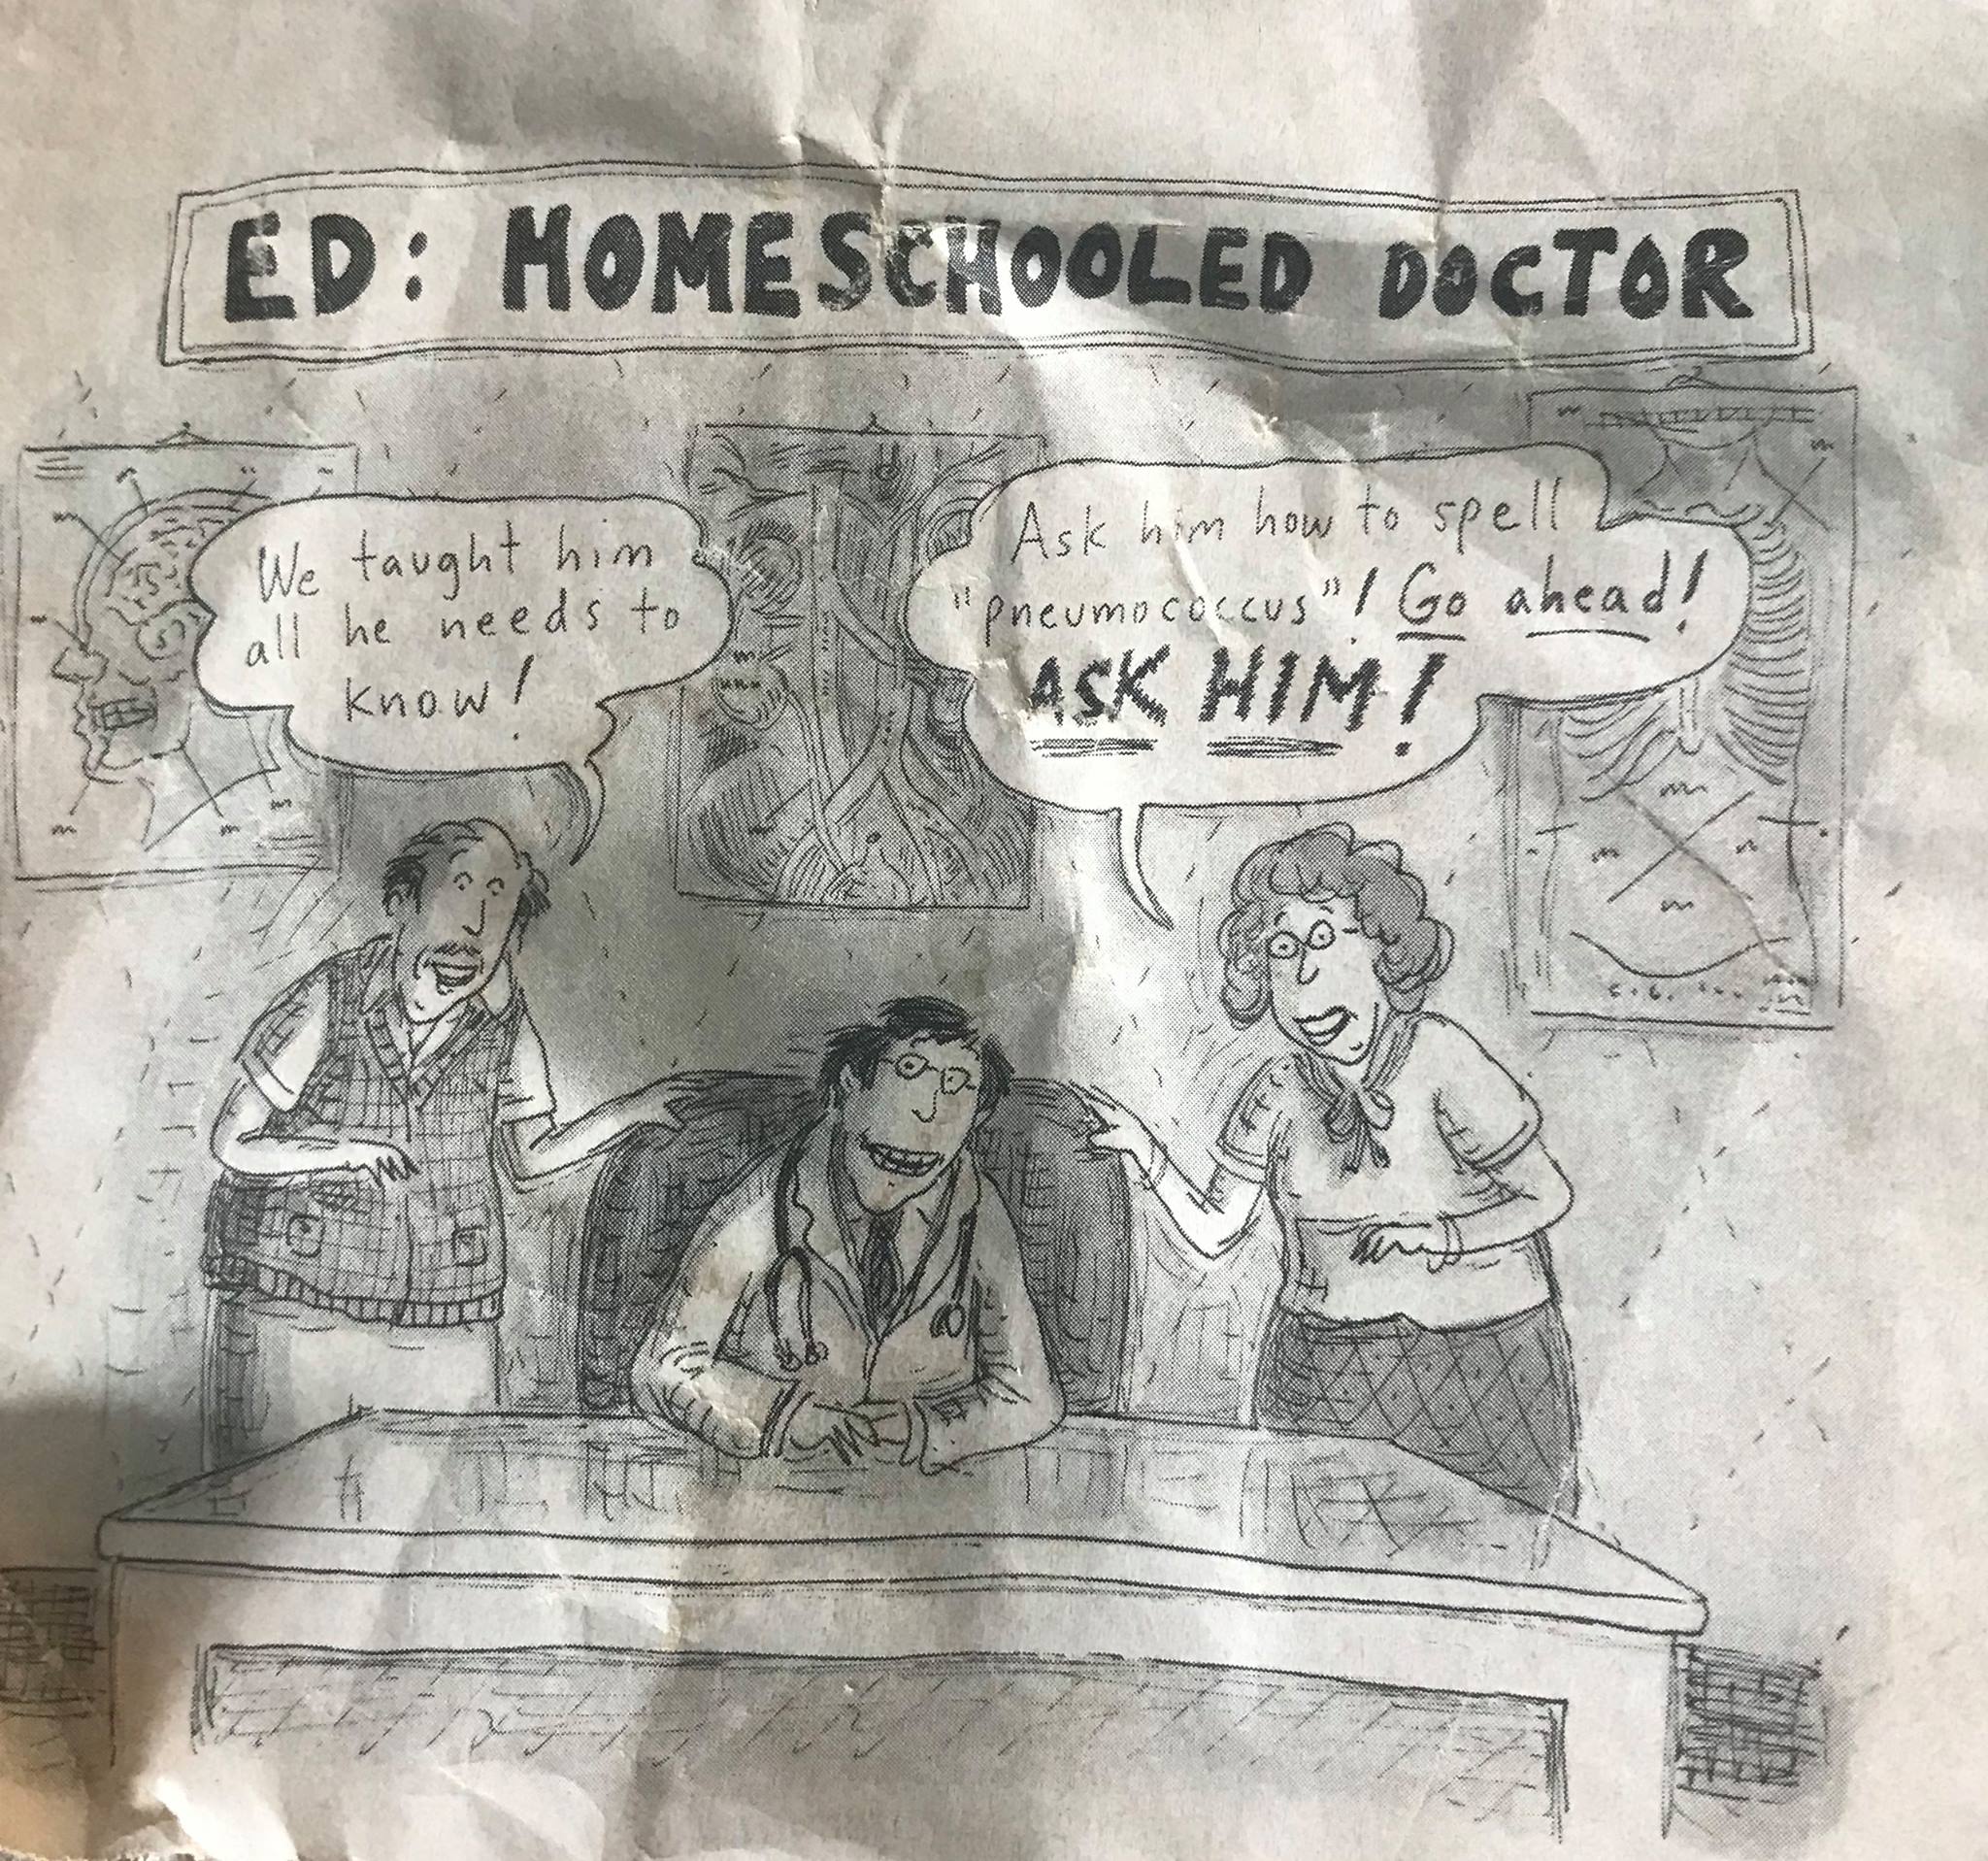 ED: HOMESCHOOLED DOCTOR
We taught him
all he needs to
know!
Ask him how to spell
"pneumococcus"! Go ahead!
ASK HIM!